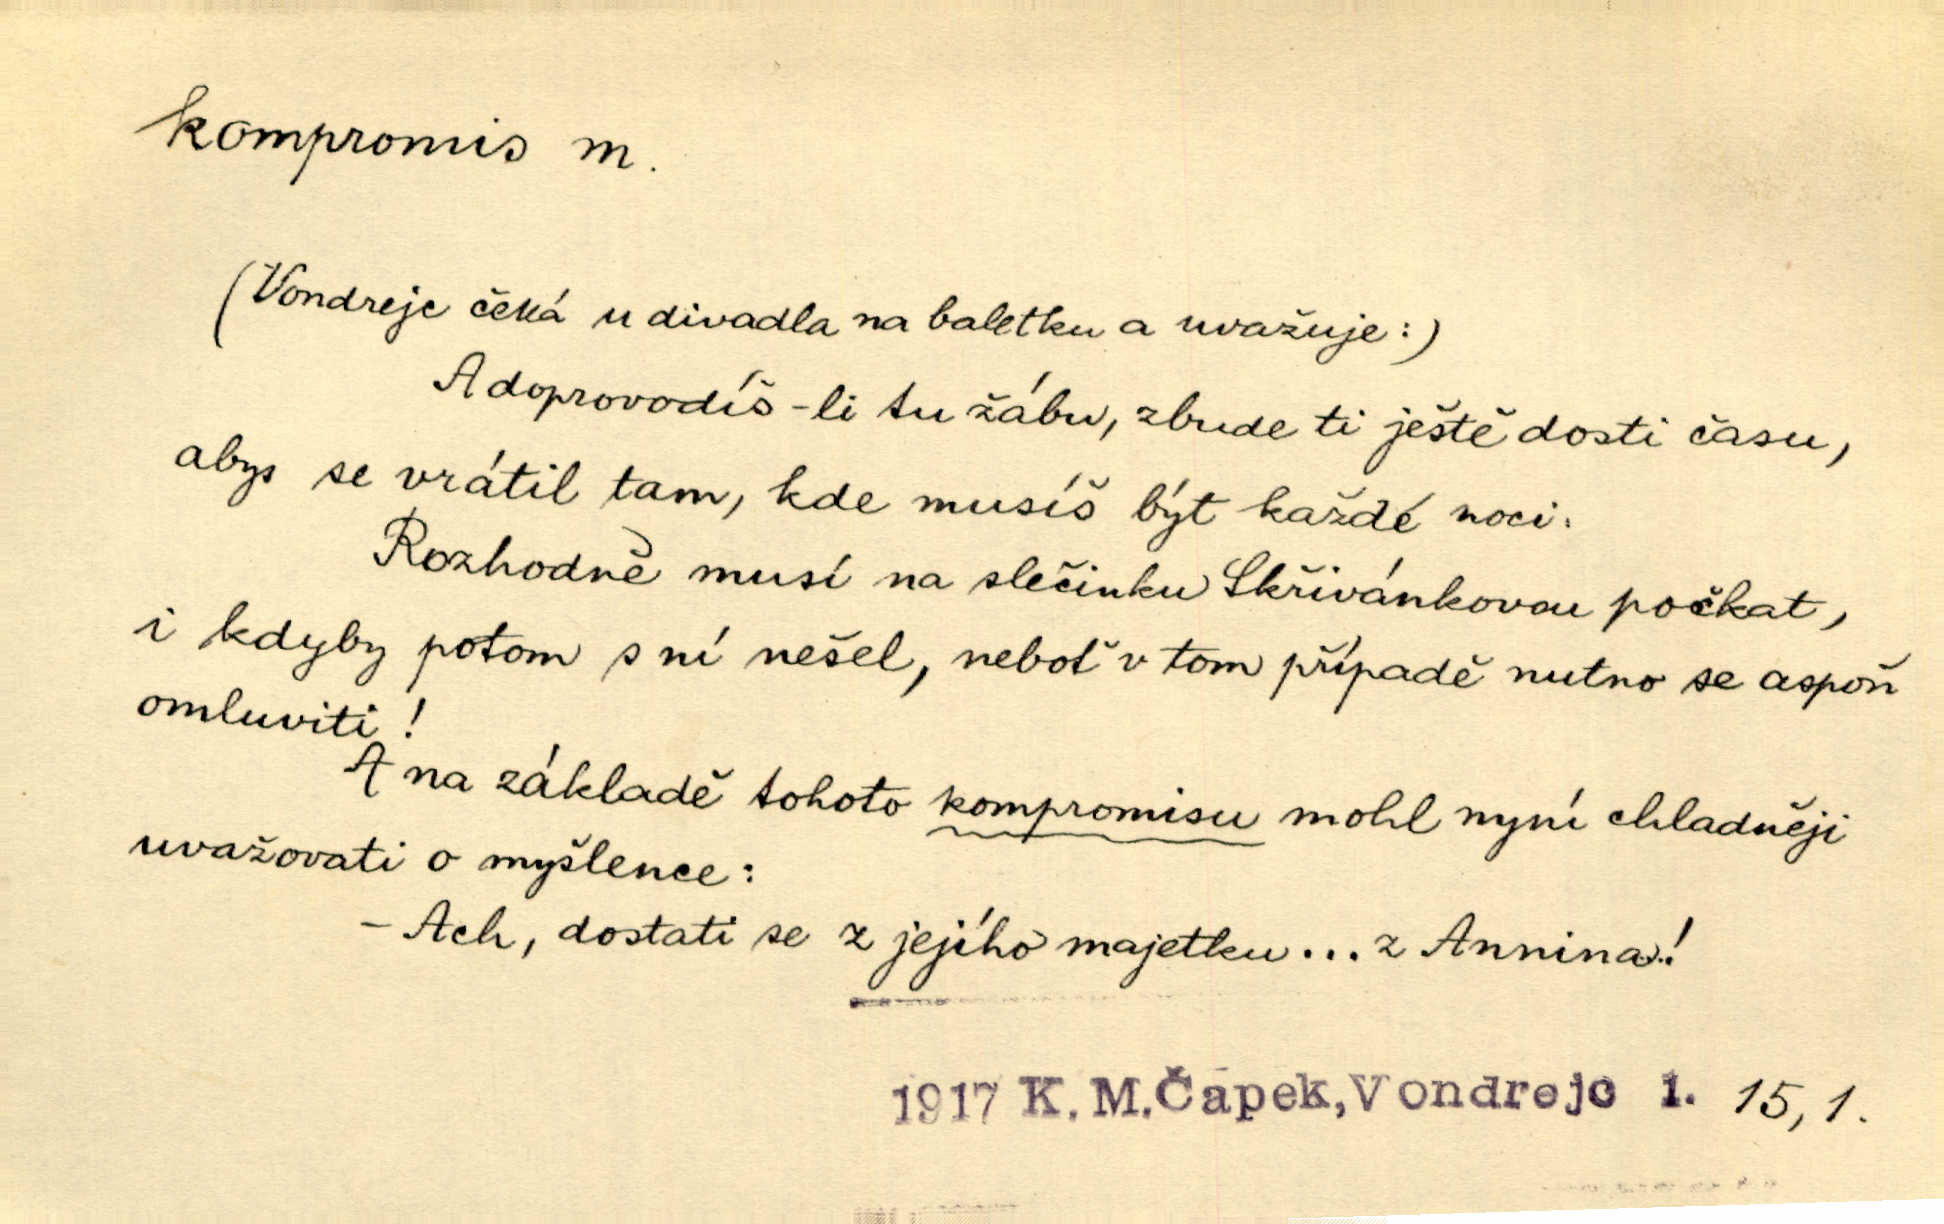 kompromis m.
(Vondrejc čeká u divadla na baletku a uvažuje:)
A doprovodíš-li tu žábu, zbude ti ještě dosti času,
abys se vrátil tam, kde musíš být každé noci.
Rozhodně musí na slečinku Skřivánkovou počkat,
i kdyby potom s ní nešel, neboť v tom případě nutno se aspoň
omluviti!
A na základě tohoto kompromisu mohl nyní chladněji
uvažovati o myšlence:
- Ach, dostati se z jejího majetku... z Annina!
1917 K. M. Čapek, Vondrejc 1. 15,1.